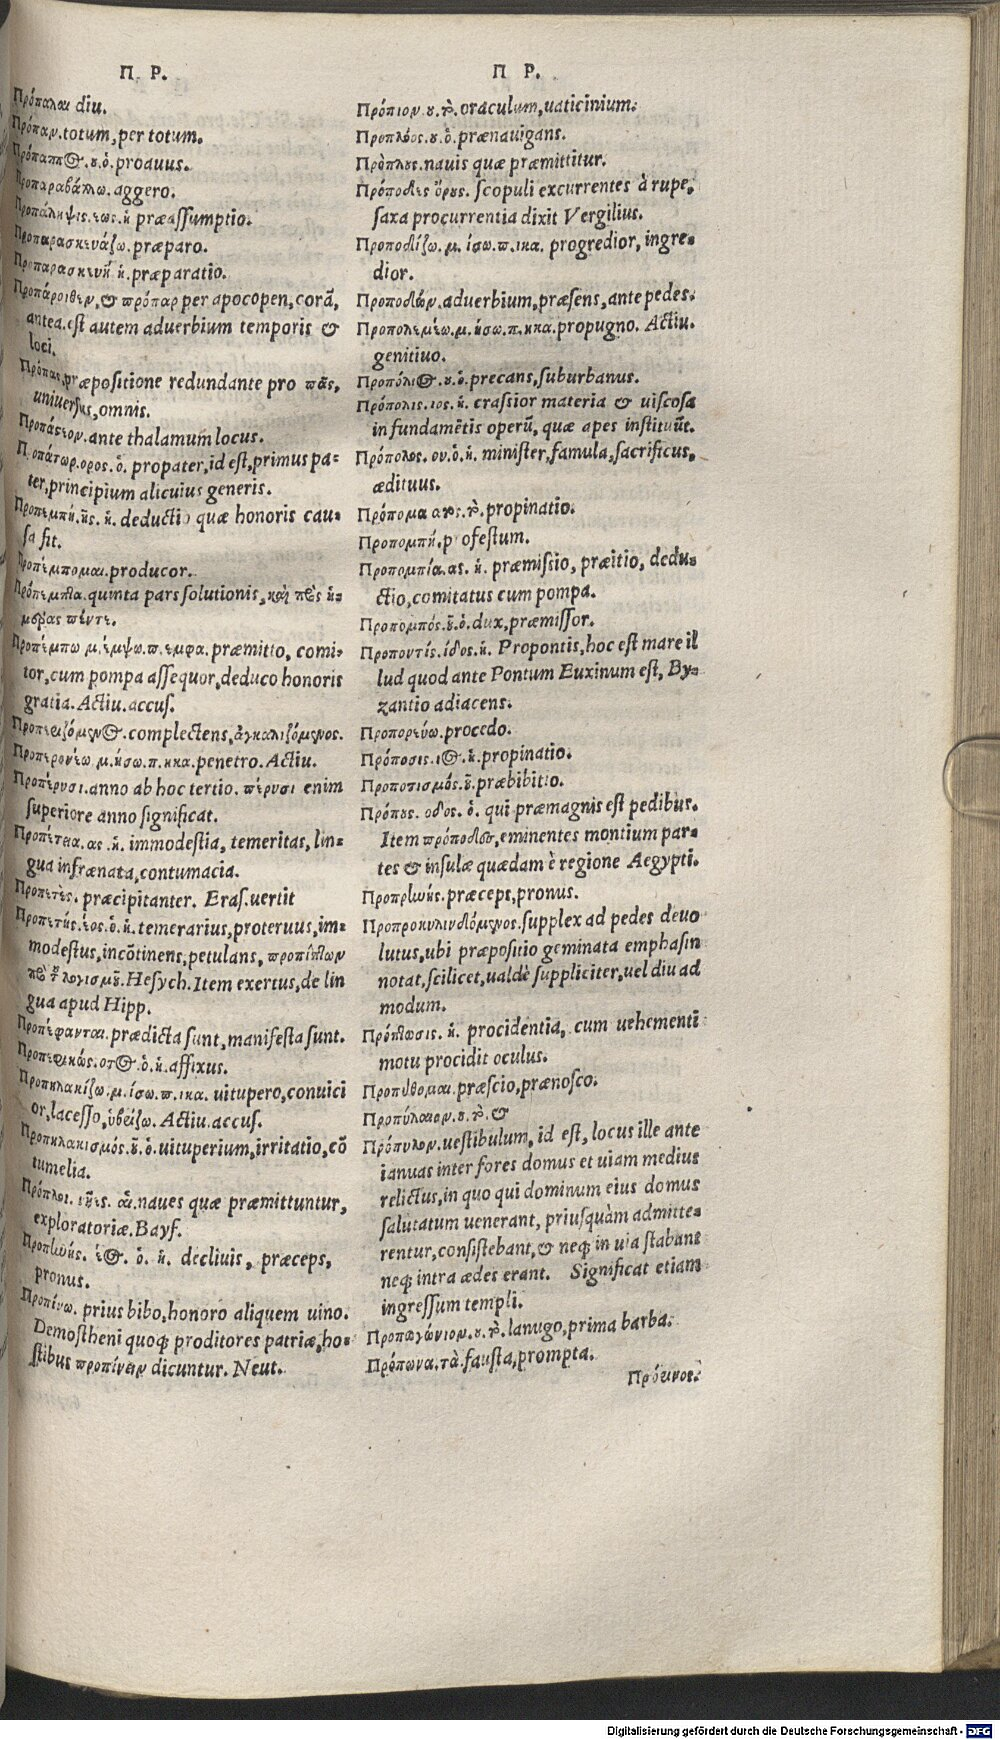 Π Ρ.
Πρόπαλαι diu.
Πρόπαν. totum, per totum.
Πρόπαππος. ου. ὁ. proauus.
Προπαραβάλλω. aggero.
Προπάληψις. εως. ἡ præassumptio.
Προπαρασκευάζω. præparo.
Προπαρασκευὴ. ἡ. præparatio.
Προπάροιθεν, & πρόπαρ per apocopen, corā,
antea. est autem aduerbium temporis &
loci.
Πρόπας, præpositione redundante pro πᾶς,
uniuersus, omnis.
Προπάστον. ante thalamum locus.
Προπάτωρ. ορος. ὁ. propater, id est, primus pa-
ter, principium alicuius generis.
Προπεμπὴ. ῆς. ἡ. deductio quæ honoris cau-
sa fit.
Προπέμπομαι. producor.
Πρόπεμπτα. quinta pars solutionis, καὶ πρὸς ἡ-
μέρας πέντε.
Προπέμπω μ. έμψω. π. εμφα. præmitto, comi-
tor, cum pompa assequor, deduco honoris
gratia. Actiu. accus.
complectens, ἀγκαλιζόμενος.
Προπερονέω. μ. ήσω. π. ηκα. penetro. Actiu.
Προπέρυσι. anno ab hoc tertio. πέρυσι enim
superiore anno significat.
Προπέτεια. ας. ἡ. immodestia, temeritas, lin-
gua infrænata, contumacia.
Προπετὲς. præcipitanter. Eras. uertit
Προπετής. έος. ὁ. ἡ. temerarius, proteruus, im-
modestus, incōtinens, petulans, προπίπτων
πρὸ τοῦ λογισμοῦ. Hesych. Item exertus, de lin
gua apud Hipp.
Προπέφανται. prædicta sunt, manifesta sunt.
Προπεφυκώς. οτος. ὁ. ἡ. affixus.
Προπηλακίζω. μ. ίσω. π. ικα. uitupero, conuici
or, lacesso, ὑβρίζω. Actiu. accus.
Προπηλακισμός. οῦ. ὁ. uituperium, irritatio, cō
tumelia.
Πρόπλοι. νῆες. αἱ. naues quæ præmittuntur,
exploratoriæ. Bayf.
Προπλωής. έος. ὁ. ἡ. decliuis, præceps,
pronus.
Προπίνω. prius bibo, honoro aliquem uino.
Demostheni quoq; proditores patriæ, ho-
stibus προπίνειν dicuntur. Neut.
Π Ρ.
Πρόπιον ου. τὸ. oraculum, uaticinium.
Προπλόος. ου. ὁ. prænauigans.
Πρόπλους. nauis quæ præmittitur.
Πρόποδες ὄρους. scopuli excurrentes à rupe,
saxa procurrentia dixit Vergilius.
Προποδίζω. μ. ίσω. π. ικα. progredior, ingre-
dior.
Προποδῶν. aduerbium, præsens, ante pedes.
Προπολεμέω. μ. ήσω. π. ηκα. propugno. Actiu.
genitiuo.
Προπόλιος. ου. ὁ. precans, suburbanus.
Πρόπολις. ιος. ἡ. crassior materia & uiscosa
in fundamētis operū, quæ apes instituūt.
Πρόπολος. ου. ὁ. ἡ. minister, famula, sacrificus,
ædituus.
Πρόπομα ατος. τὸ. propinatio.
Προπομπή. p ofestum.
Προπομπία. ας. ἡ. præmissio, præitio, dedu-
ctio, comitatus cum pompa.
Προπομπός. οῦ. ὁ. dux, præmissor.
Προποντίς. ίδος. ἡ. Propontis, hoc est mare il
lud quod ante Pontum Euxinum est, By-
zantio adiacens.
Προπορεύω. procedo.
Πρόποσις. ιος. ἡ. propinatio.
Προποτισμός. οῦ. præbibitio.
Πρόπους. οδος. ὁ. qui præmagnis est pedibus.
Item πρόποδες, eminentes montium par-
tes & insulæ quædam è regione Aegypti.
Προπρηνής. præceps, pronus.
Προπροκυλινδόμενος. supplex ad pedes deuo
lutus, ubi præpositio geminata emphasin
notat, scilicet, ualdè suppliciter, uel diu ad
modum.
Πρόπτωσις. ἡ. procidentia, cum uehementi
motu procidit oculus.
Προπύθομαι. præscio, prænosco.
Προπύλαιον. ου. τὸ. &
Πρόπυλον. uestibulum, id est, locus ille ante
ianuas inter fores domus et uiam medius
relictus, in quo qui dominum eius domus
salutatum uenerant, priusquàm admitte-
rentur, consistebant, & neq; in uia stabant
neq; intra ædes erant. Significat etiam
ingressum templi.
Προπωγώνιον. ου. τὸ. lanugo, prima barba.
Πρόπωνα. τὰ. fausta, prompta.
Digitalisierung gefördert durch die Deutsche Forschungsgemeinschaft - DFG